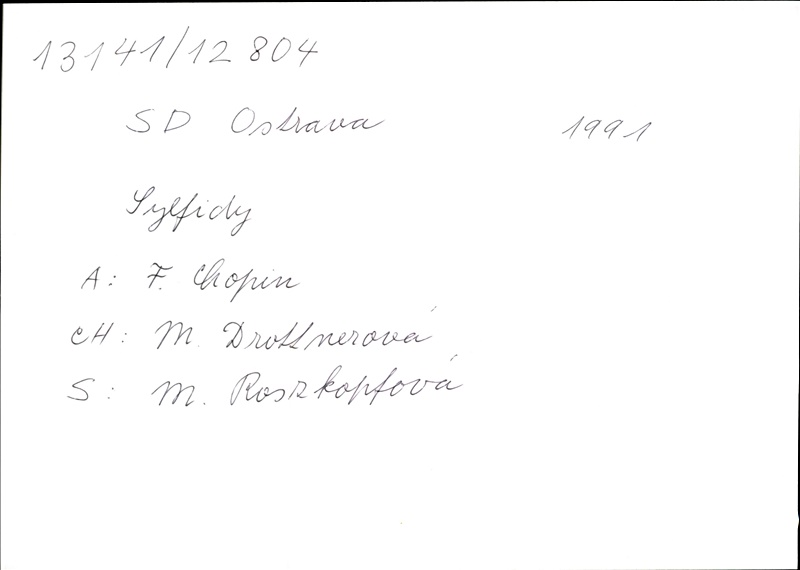 13141/12 804
SD Ostrava 1991
Sylfidy
A: F. Chopin
CH: M. Drottnerová
S: M. Roszkopfová